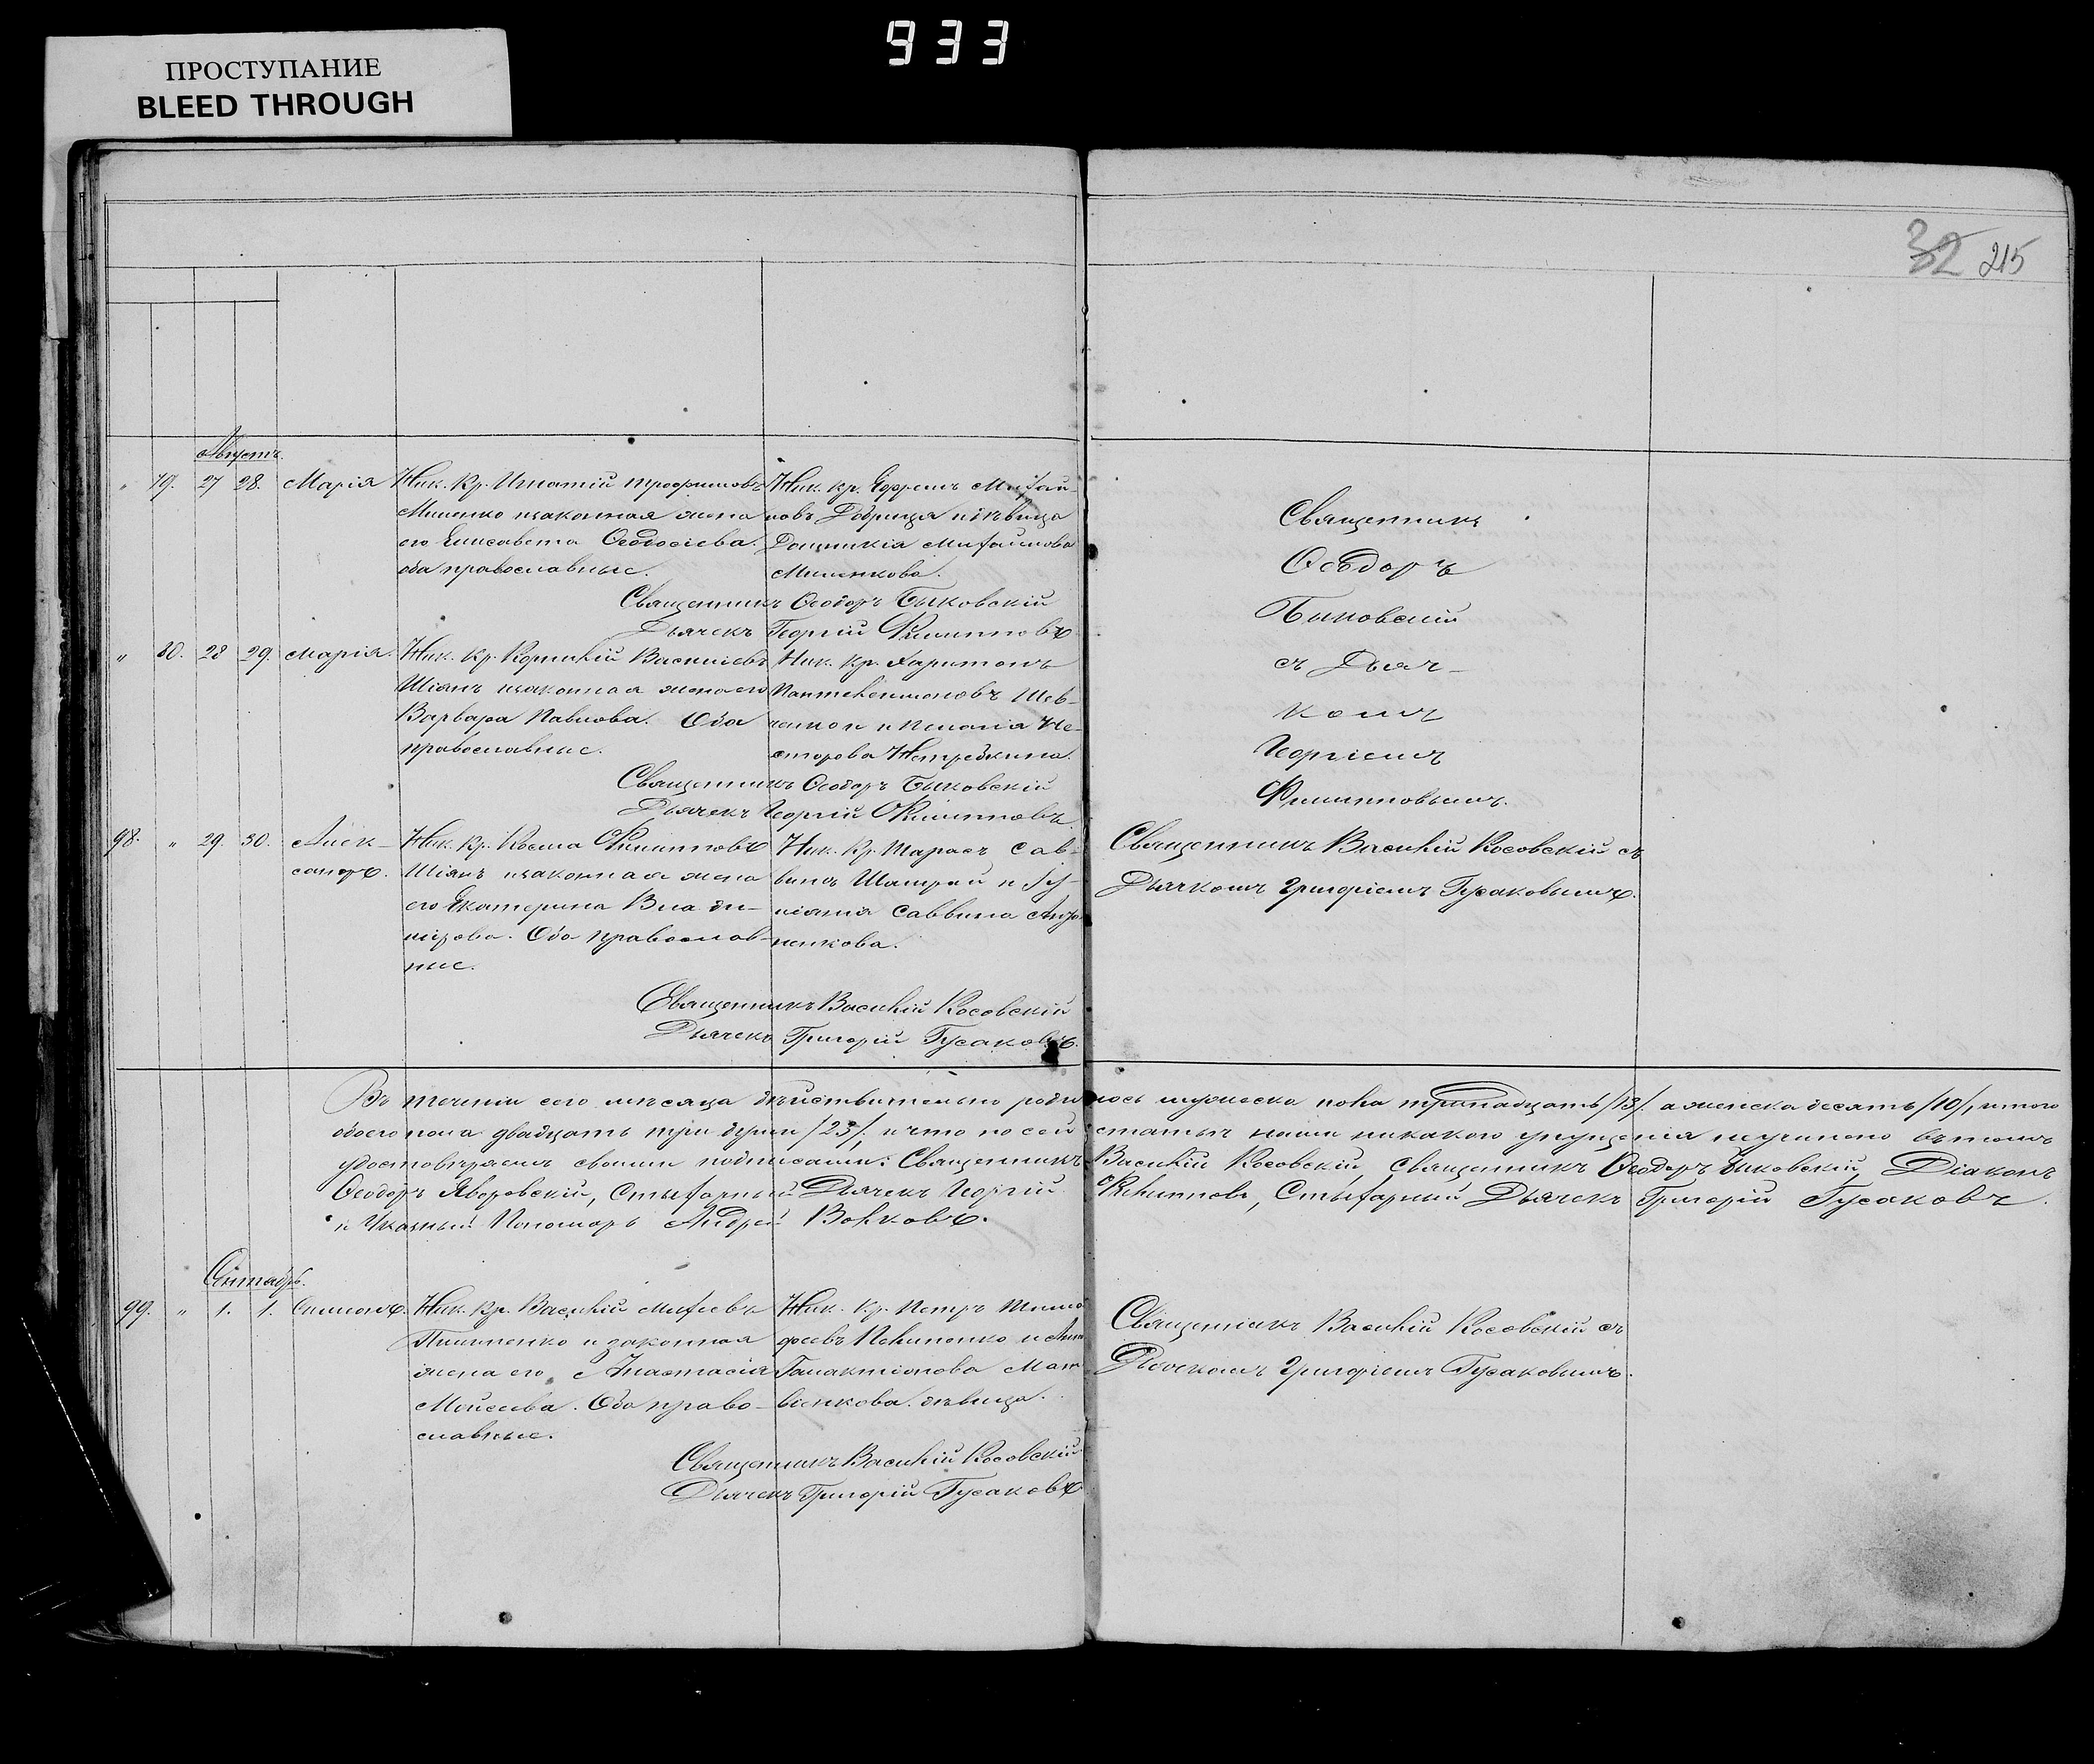 933
ПРОСТУПАНИЕ
BLEED THROUGH
32 215
Августъ.
" 79. 27 28. Марія Ник. Кр. Игнатій Трофимовъ
Миленко изаконная жена
его Елисавета Ѳеодосіева.
оба православные.
Ник. кр. Ефремъ Михай-
ловъ Дабрица идѣвица
Домникія Михайлова
Миленкова.
Священникъ Ѳеодоръ Быковскій
Дьячекъ Георгій Филипповъ
Священникъ
Ѳеодоръ
Быковскій
съ Дьяч-
комъ
Георгіемъ
Филипповымъ.
" 80. 28 29. Марія Ник. Кр. Корнилій Василіевъ
Шіянъ изаконная жена его
Варвара Павлова. Оба
православные.
Ник. Кр. Харитонъ
Пантелеимоновъ Шев-
ченко и Пелагія Не-
сторова
Священникъ Ѳеодоръ Быковскій
Дьячекъ Георгій Филипповъ
98. " 29. 30. Алек-
сандръ.
Ник. Кр. Косма Филипповъ
Шіянъ изаконная жена
его Екатерина Влади-
мірова. Оба православ-
ные.
Ник. Кр. Тарасъ Сав-
винъ и Іу-
ліанія Саввина
ненкова.
Священникъ Василій Косовскій
Дьячекъ Григорій Гусаковъ.
Священникъ Василій Косовскій съ
Дьячкомъ Григоріемъ Гусаковымъ.
Въ теченіи сего мѣсяца дѣйствительно родилось мужеска пола тринадцать /13/. а женска десять /10/, итого
обоего пола двадцать три души /23/, и что по сей статьи нами никакого упущенія неучинено въ томъ
удостовѣряемъ своими подписами: Священникъ Василій Косовскій, Священникъ Ѳеодоръ Быковскій, Діаконъ
Ѳеодоръ Яворовскій, Стихарный Дьячекъ Георгій Филипповъ, Стихарный Дьячекъ Григорій Гусаковъ.
и Указный Пономарь Андрей Волковъ.
Сентябрь.
99. " 1. 1. Симеонъ. Ник. Кр. Василій Михеевъ
Пилипенко и законная
жена его Анастасія
Моисеева. Оба право-
славные.
Ник. Кр. Петръ Тимо-
феевъ Пелипенко и Анна
Галактіонова Мат-
віенкова дѣвица.
Священникъ Василій Косовскій
Дьячекъ Григорій Гусаковъ
Священникъ Василій Косовскій съ
Дьячкомъ Григоріемъ Гусаковымъ.